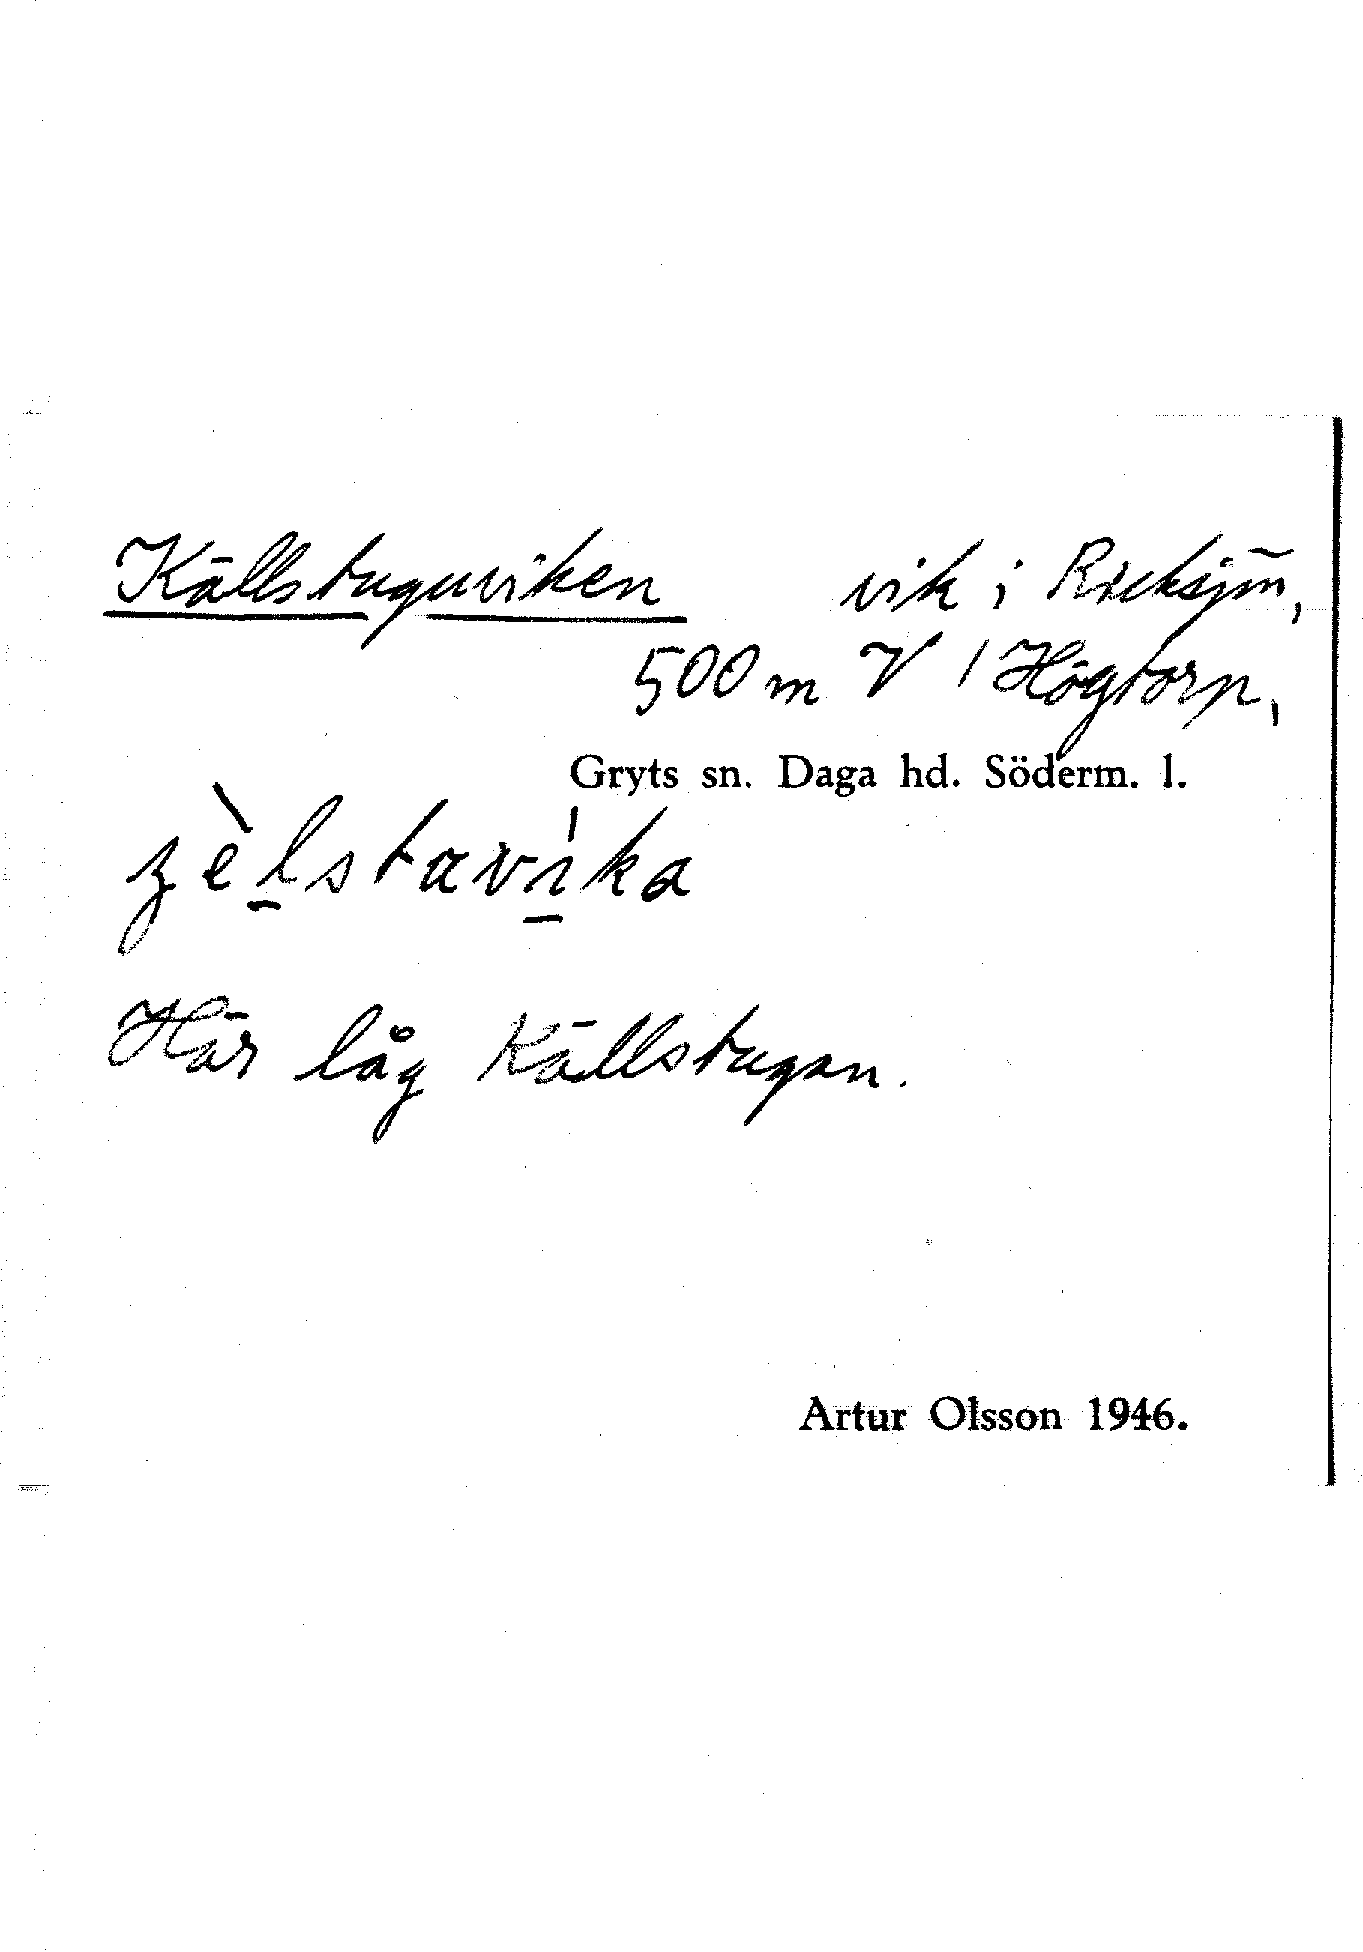 Källstuguviken vik i Ricksjön,
500 m V / Högtorp,
Gryts sn. Daga hd. Söderm. l.
zèlstavíka
Här låg Källstugan.
Artur Olsson 1946.